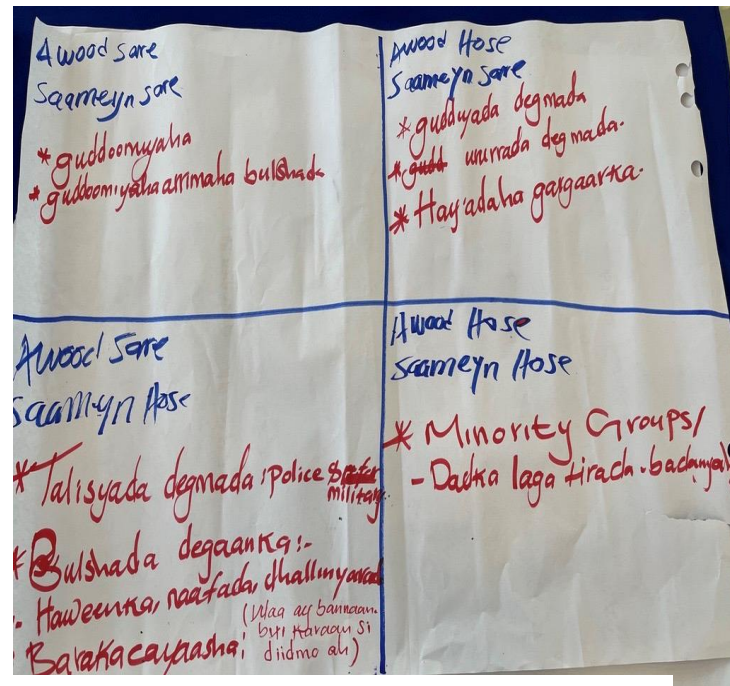 Awood sare
Saameyn sare
* guddoomiyaha
* guddoomiyaha arrimaha bulshada
Awood Hose
Saameyn sare
* guddiyada degmada
* gudd ururrada degmada.
* Hay'adaha gargaarka.
Awood Sare
Saameyn Hose
* Talisyada degmada : police &
military
* Bulshada degaanka :-
- Haweenka, naafada, dhallinyarada
- Barakacayaasha;
(Waa ay bannaan
bixi karaan si
diidmo ah)
Awood Hose
Saameyn Hose
* Minority Groups/
- Dadka laga tirada badanyahay